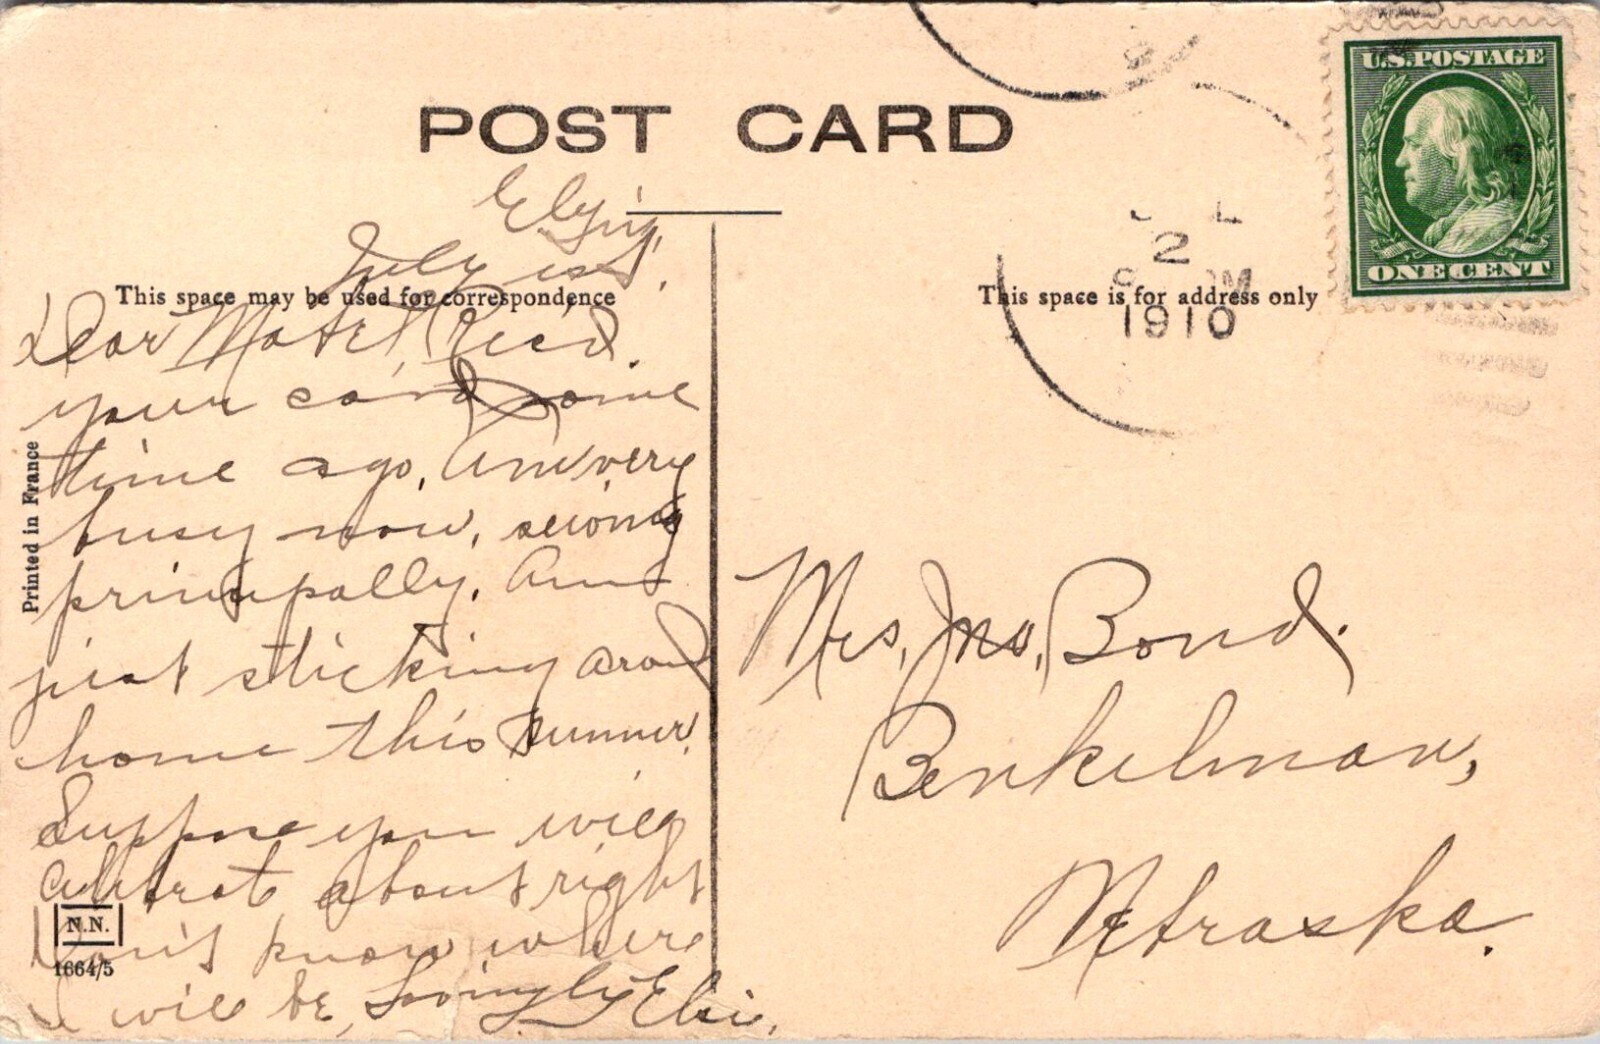 POST CARD
U.S. POSTAGE
ONE CENT
Elgin,
July 1st.
This space may be used for correspondence
This space is for address only
J L
2
M
1910
Dear Mabel, Rec'd.
your card some
time ago. Am very
busy now, sewing
principally. Am
just sticking around
home this summer.
Suppose you will
celebrate about right
Don't know where
I will be, Lovingly Elsie.
Printed in France
N.N.
1664/5
Mrs. Jno. Bond.
Benkelman,
Nebraska.